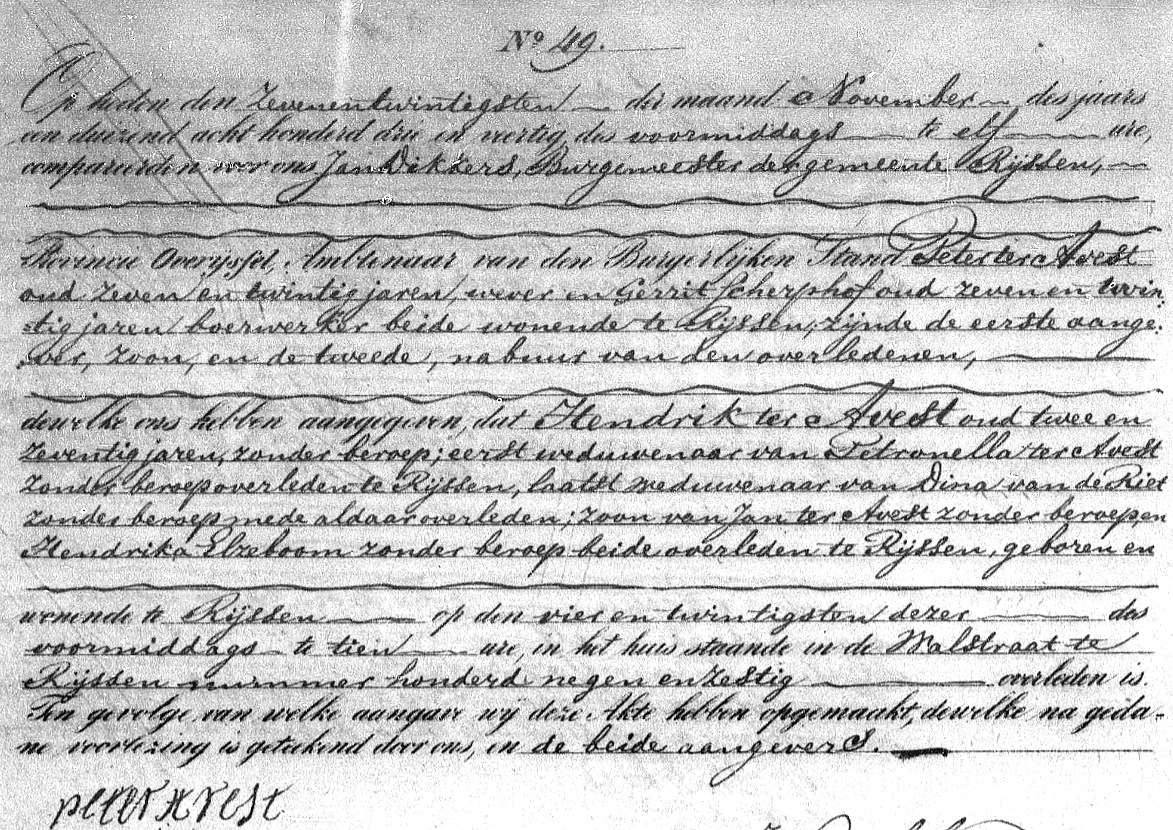 Nº 49.
Op heden den Zevenentwintigsten der maand November des jaars
een duizend acht honderd drie en veertig, des voormiddags te elf ure,
compareerden voor ons Jan Dikkers, Burgemeester der gemeente Rijssen,
Provincie Overijssel, Ambtenaar van den Burgerlijken Stand Peter ter Avest
oud zeven en twintig jaren, wever en Gerrit Scherphof oud zeven en twin:
:tig jaren boerwerker beide wonende te Rijssen, zijnde de eerste aange:
:ver, zoon, en de tweede, nabuur van den overledenen,
dewelke ons hebben aangegeven, dat Hendrik ter Avest oud twee en
zeventig jaren, zonder beroep; eerst weduwenaar van Petronella ter Avest
zonder beroep overleden te Rijssen, laatst weduwenaar van Dina van de Riet
zonder beroep mede aldaar overleden; zoon van Jan ter Avest zonder beroep en
Hendrika Elzeboom zonder beroep beide overleden te Rijssen, geboren en
wonende te Rijssen op den vier en twintigsten dezer des
voormiddags te tien ure, in het huis staande in de Walstraat te
Rijssen nummer honderd negen en zestig overleden is.
Ten gevolge van welke aangave wij deze Akte hebben opgemaakt, dewelke na geda-
ne voorlezing is geteekend door ons, en de beide aangevers.
peter Avest